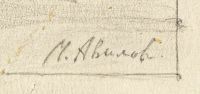 М. Авилов.